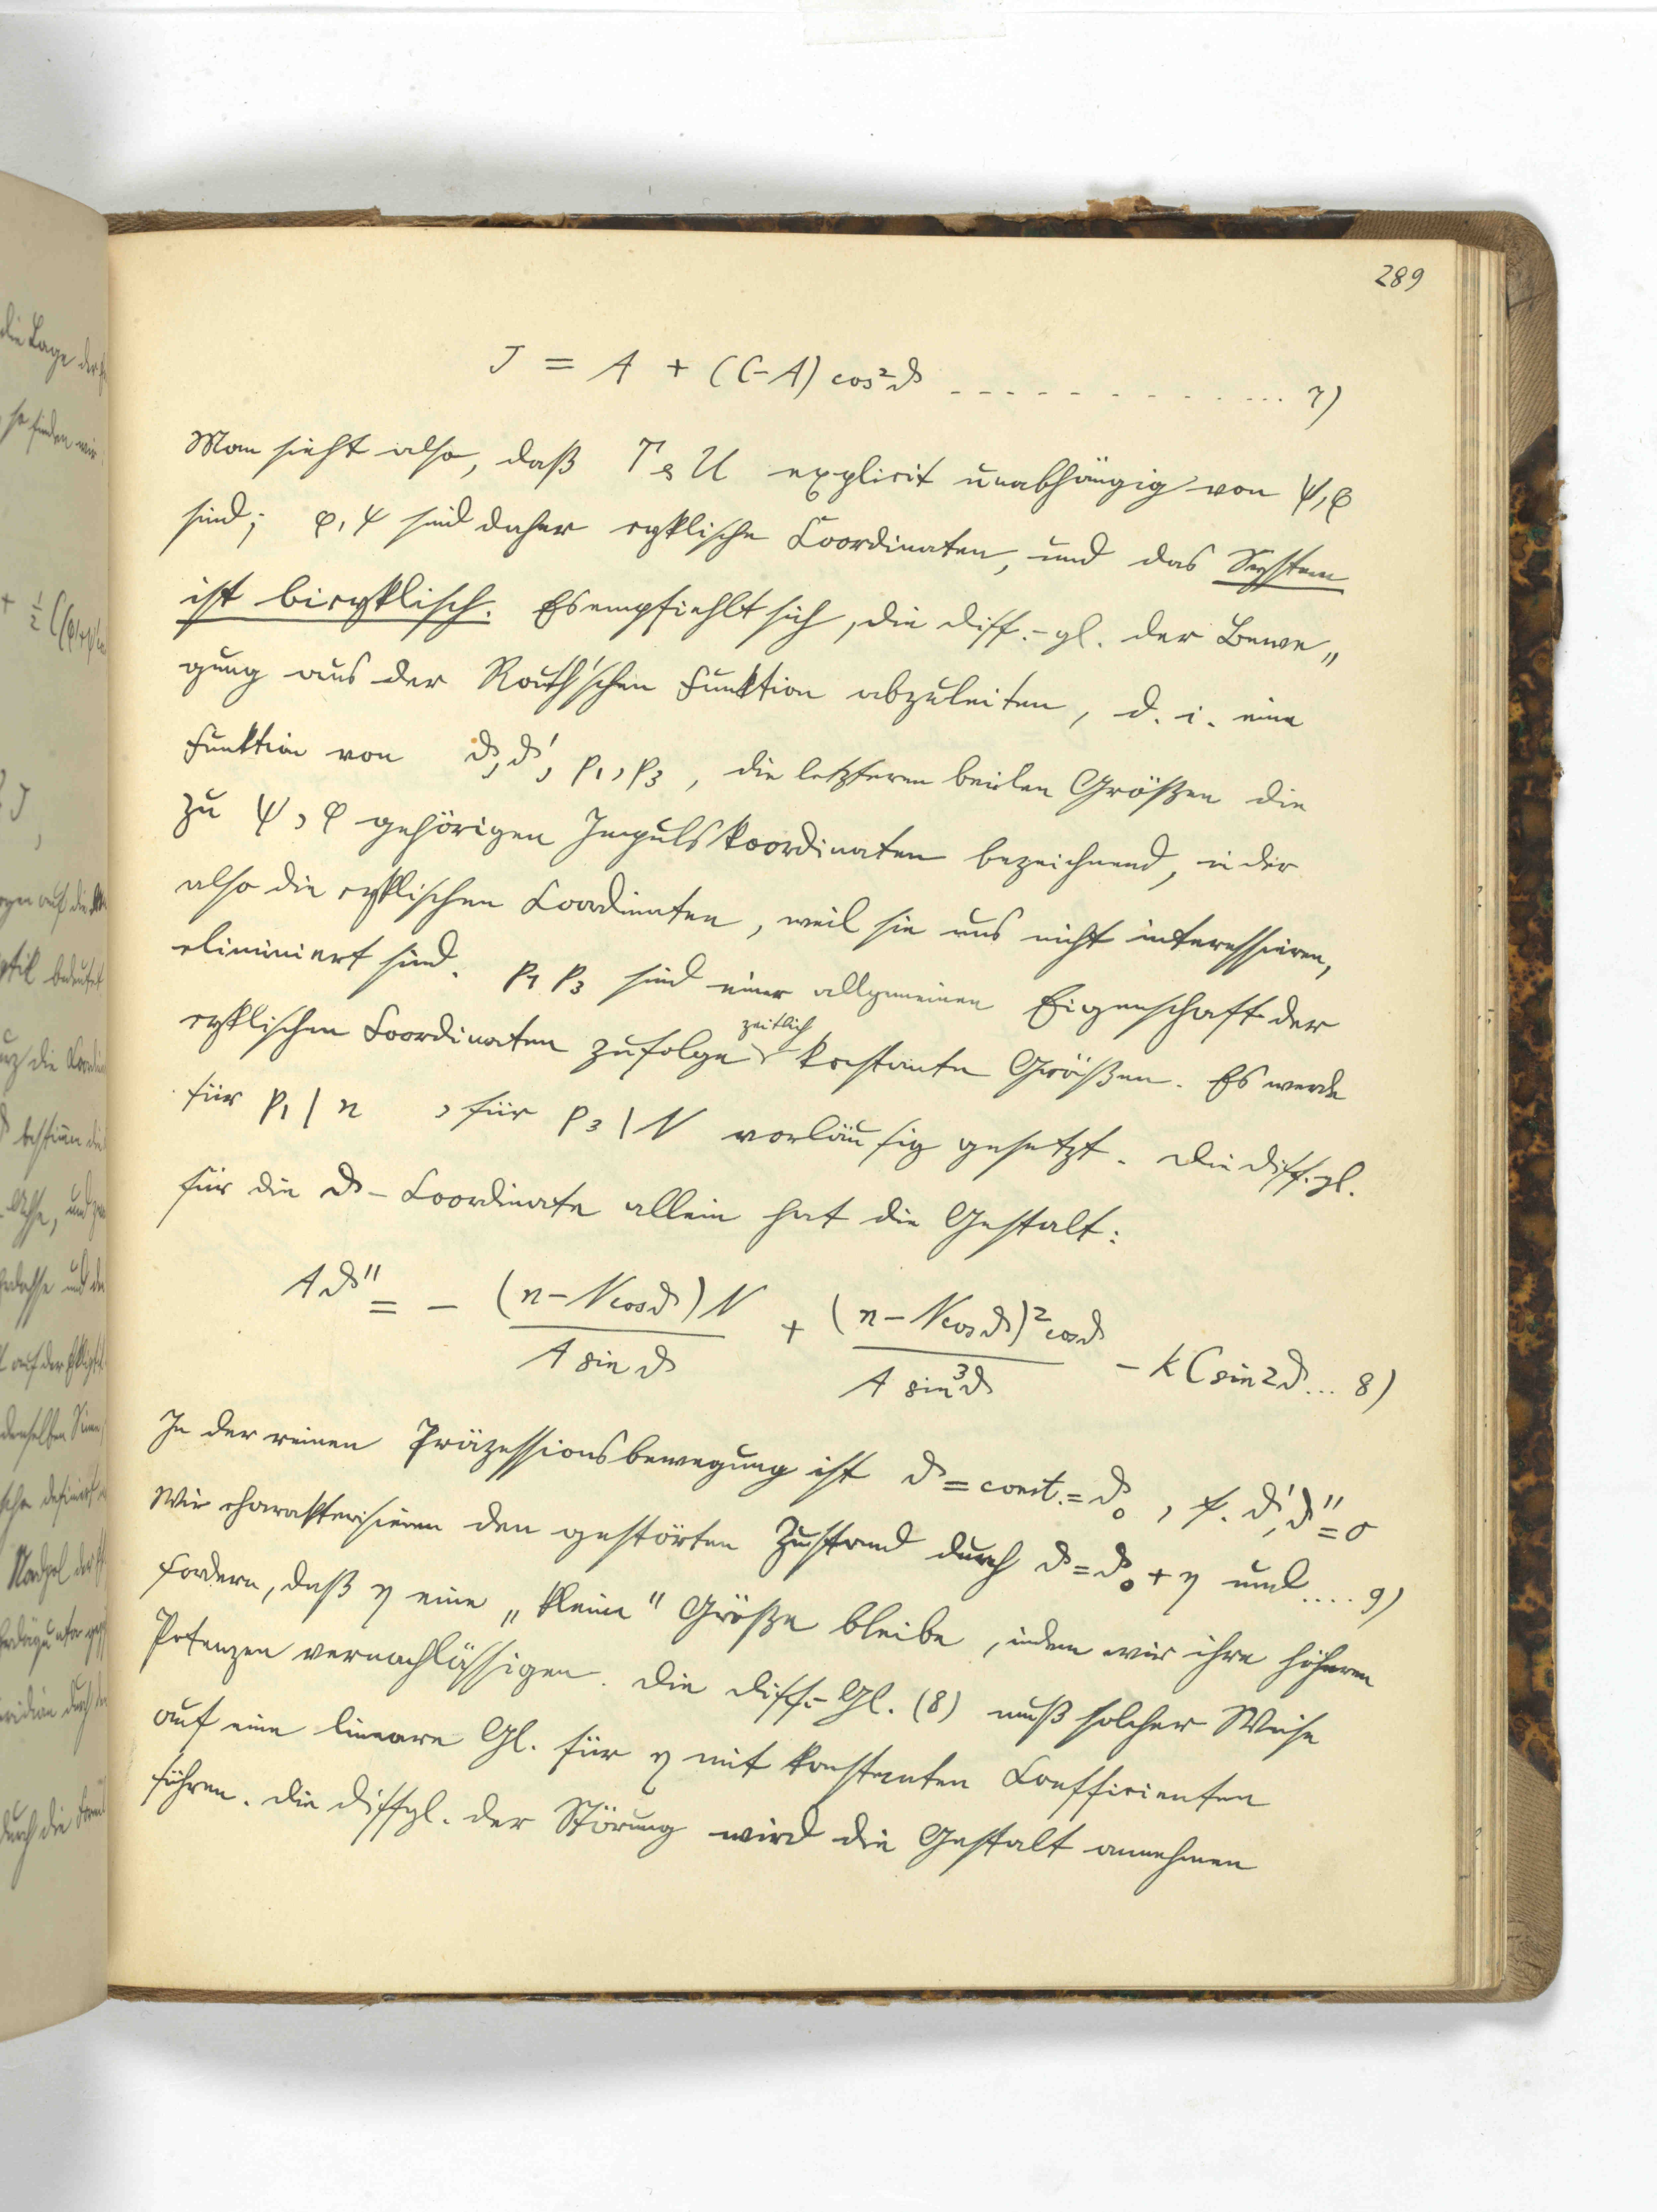 289
J = A + (C-A) cos²ϑ - - - - - - - - - - ... 7)
Man sieht also, daß T & U explicit unabhängig von ψ, φ
sind; φ, ψ sind daher cyklische Coordinaten, und das System
ist bicyklisch. Es empfiehlt sich, die Diff.-gl. der Bewe„
gung aus der Routh'schen Funktion abzuleiten, d. i. eine
Funktion von ϑ, ϑ', p₁, p₃, die letzteren beiden Größen die
zu ψ, φ gehörigen Impulskoordinaten bezeichnend, in der
also die cyklischen Coordinaten, weil sie uns nicht interessieren,
eliminiert sind. p₁ p₃ sind einer allgemeinen Eigenschaft der
zeitlich
cyklischen Coordinaten zufolge konstante Größen. Es werde
für p₁ | n , für p₃ | N vorläufig gesetzt. Die Diff.gl.
für die ϑ-Coordinate allein hat die Gestalt:
Aϑ'' = - (n - N cosϑ) N / A sin ϑ + (n - N cosϑ)² cosϑ / A sin³ϑ - k C sin 2ϑ ... 8)
In der reinen Präzessionsbewegung ist ϑ = const. = ϑ₀ , ϑ', ϑ'' = 0
Wir charakterisieren den gestörten Zustand durch ϑ = ϑ₀ + η und .... 9)
fordern, daß η eine „kleine" Größe bleibe, indem wir ihre höheren
Potenzen vernachlässigen. Die Diff.-Gl. (8) muß solcher Weise
auf eine lineare Gl. für η mit konstanten Coefficienten
führen. Die Diffgl. der Störung wird die Gestalt annehmen